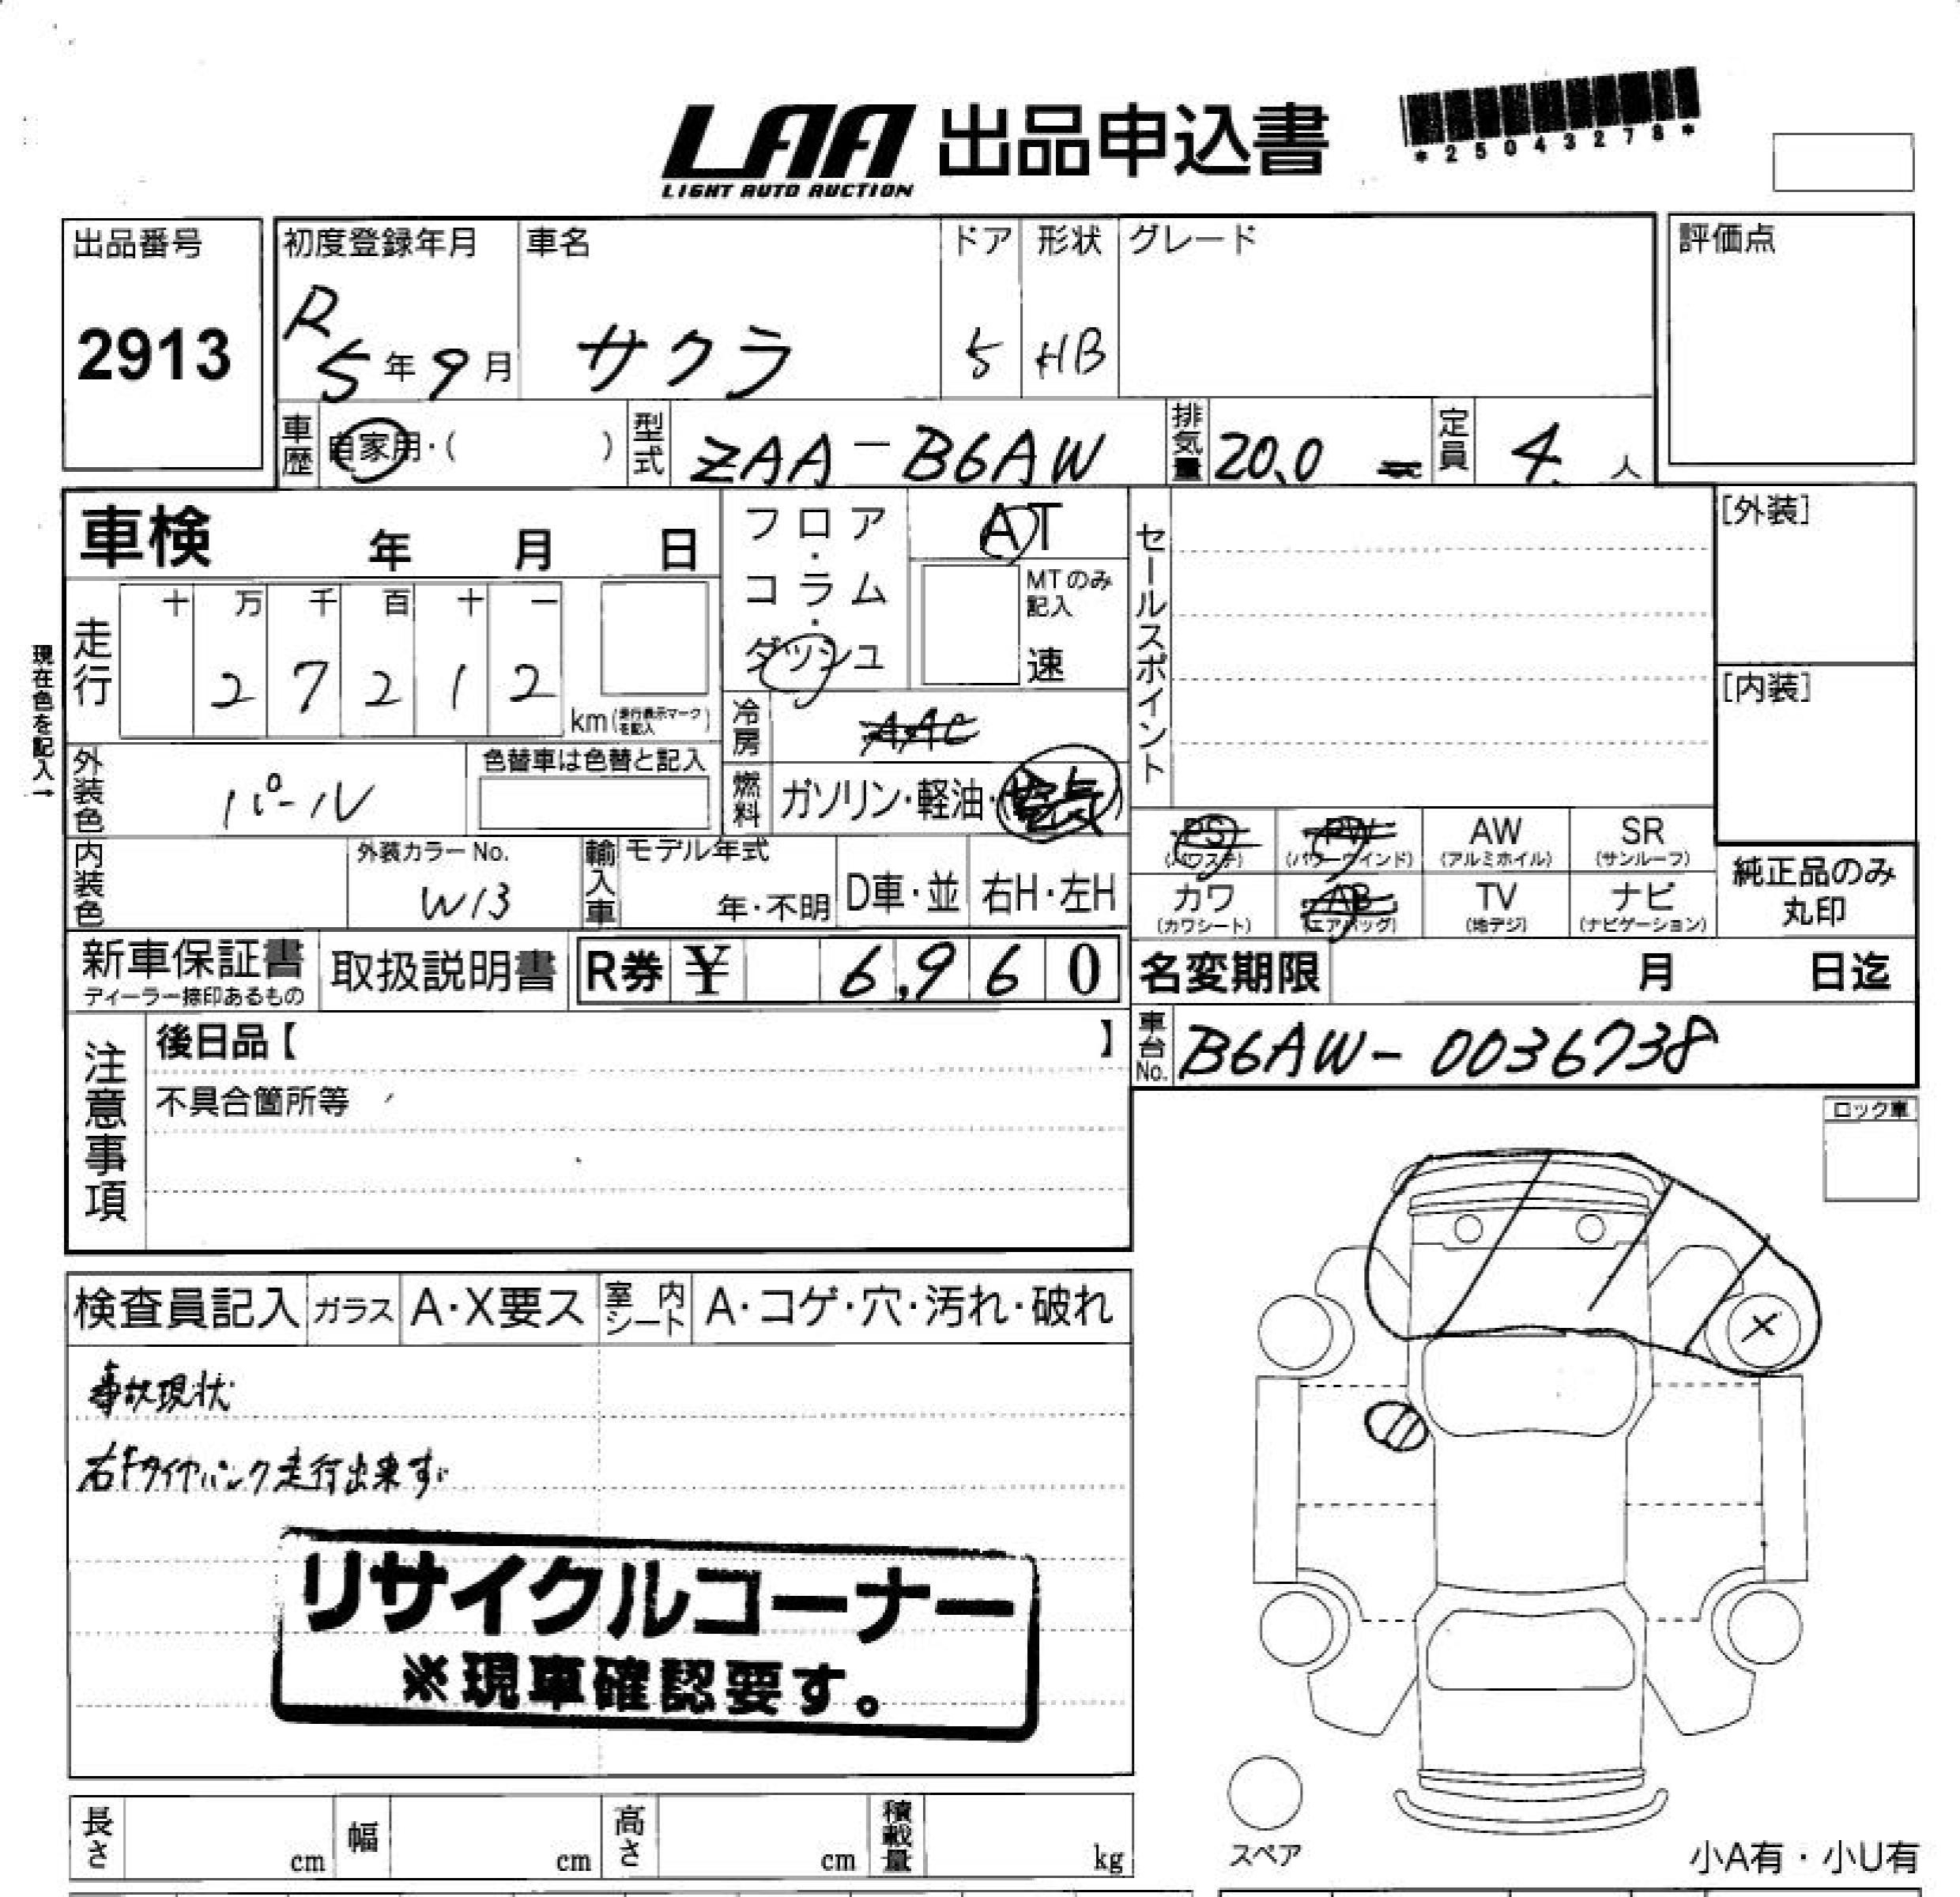 LAA 出品申込書
LIGHT AUTO AUCTION
*25043278*
出品番号 初度登録年月 車名 ドア 形状 グレード 評価点
2913 R 5年9月 サクラ 5 HB
車歴 自家用・( ) 型式 ZAA-B6AW 排気量 20.0 定員 4 人
車検 年 月 日 フロア・コラム・ダッシュ AT セールスポイント [外装]
MTのみ記入 速
走行 十 万 千 百 十 一
2 7 2 1 2 km(走行表示マークを記入)
[内装]
現在色を記入→
冷房 AAC
外装色 パール 色替車は色替と記入 燃料 ガソリン・軽油・電気
PS (パワステ) PW (パワーウインド) AW (アルミホイル) SR (サンルーフ)
内装色 外装カラーNo. W13 輸入車 モデル年式 年・不明 D車・並 右H・左H
カワ (カワシート) AB (エアバッグ) TV (地デジ) ナビ (ナビゲーション)
純正品のみ丸印
新車保証書 ディーラー捺印あるもの 取扱説明書 R券 ¥ 6,960 名変期限 月 日迄
注意事項 後日品【 】 車台No. B6AW-0036738
不具合箇所等
ロック車
検査員記入 ガラス A・X要ス 室内シート A・コゲ・穴・汚れ・破れ
事故現状
右Fタイヤパンク走行出来ず
リサイクルコーナー
※現車確認要す。
スペア
小A有・小U有
長さ cm 幅 cm 高さ cm 積載量 kg